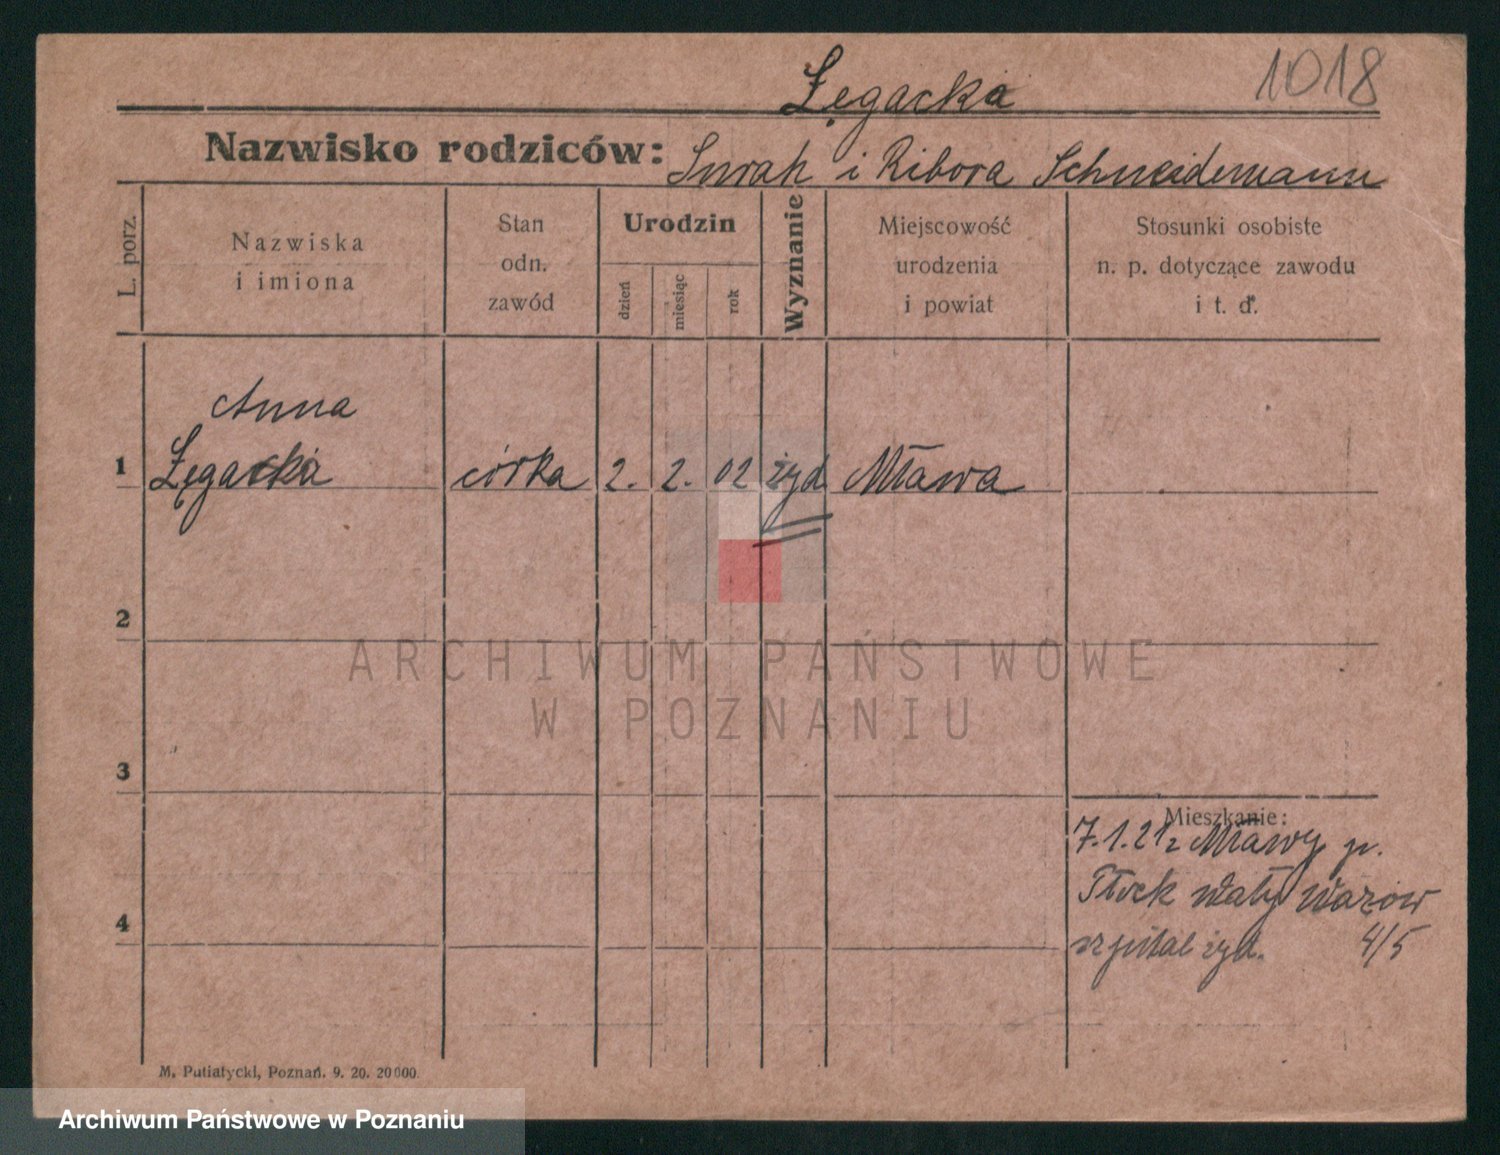 1018
Łęgacka
Nazwisko rodziców: Surah i Ribora Schneidemann
L. porz.
Nazwiska
i imiona
Stan
odn.
zawód
Urodzin
dzień
miesiąc
rok
Wyznanie
Miejscowość
urodzenia
i powiat
Stosunki osobiste
n. p. dotyczące zawodu
i t. d.
Anna
1 Łęgacka córka 2. 2. 02 żyd Mława
2
ARCHIWUM PAŃSTWOWE
W POZNANIU
3
Mieszkanie:
7.1.21 z Mławy p.
Płock Wały
4
szpital żyd. 4/5
M. Putiatycki, Poznań. 9. 20. 20000.
Archiwum Państwowe w Poznaniu